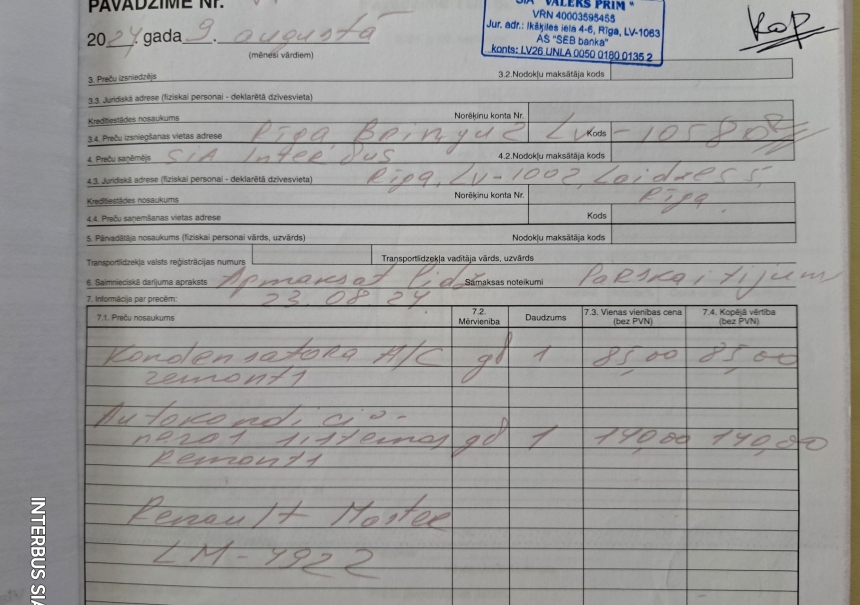 PAVADZĪME Nr.
SIA "VALEKS PRIM"
VRN 40003595455
Jur. adr.: Ikšķiles iela 4-6, Rīga, LV-1063
AS "SEB banka"
konts: LV26 UNLA 0050 0180 0135 2
2024. gada 9. augustā
(mēnesi vārdiem)
3. Preču izsniedzējs 3.2.Nodokļu maksātāja kods
3.3. Juridiskā adrese (fiziskai personai - deklarētā dzīvesvieta)
Kredītiestādes nosaukums Norēķinu konta Nr.
3.4. Preču izsniegšanas vietas adrese Rīga, Kods LV-1058
4. Preču saņēmējs SIA Inter Bus 4.2.Nodokļu maksātāja kods
4.3. Juridiskā adrese (fiziskai personai - deklarētā dzīvesvieta) Rīga, LV-1002,
Kredītiestādes nosaukums Norēķinu konta Nr. Rīga
4.4. Preču saņemšanas vietas adrese Kods
5. Pārvadātāja nosaukums (fiziskai personai vārds, uzvārds) Nodokļu maksātāja kods
Transportlīdzekļa valsts reģistrācijas numurs Transportlīdzekļa vadītāja vārds, uzvārds
6. Saimnieciskā darījuma apraksts Apmaksat lidz Samaksas noteikumi Parskaitijum
7. Informācija par precēm: 23.08.24
7.1. Preču nosaukums 7.2. Mērvienība Daudzums 7.3. Vienas vienības cena (bez PVN) 7.4. Kopējā vērtība (bez PVN)
Kondensatora A/C gb 1 85,00 85,00
remonts
Autokondicio-
nera sistemas gb 1 140,00 140,00
Remonts
Renault Master
LM-4922
INTERBUS SIA